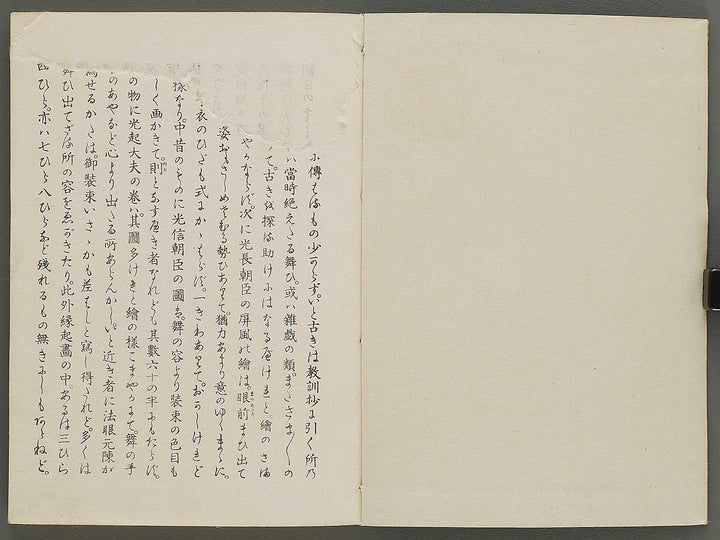 に傳はるもの少からず。いと古きは教訓抄に引く所乃
ハ當時絶えたる舞ひ。或ハ雜戯の類。またさま〲の
て。古きを探る助けにはなるべけれど。繪のさま
やかならず。次に光長朝臣の屏風の繪は。眼前まひ出て
姿 勢ひありて。猶力あまり意のゆくまゝに。
衣のひだも式にかゝはらず。一きわありて。おかしけれど
様なり。中昔のものに光信朝臣の圖有。舞の容より装束の色目も
しく画かきて。則となすべき者なれども其數六十の半にもたらず。
の物に光起大夫の巻ハ。其圖多けれど繪の様こまやかにて。舞の手
のあやなど心より出たる所あらんかし。いと近き者に法眼元陳が
せるかたは。御装束いさゝかも差はじと寫し得されど。多くは
舞ひ出でざる所の容をゑがきたり。此外縁起畫の中。あるは三ひら
四ひら。亦ハ七ひら八ひらなど残れるもの無きにしもあらねど。